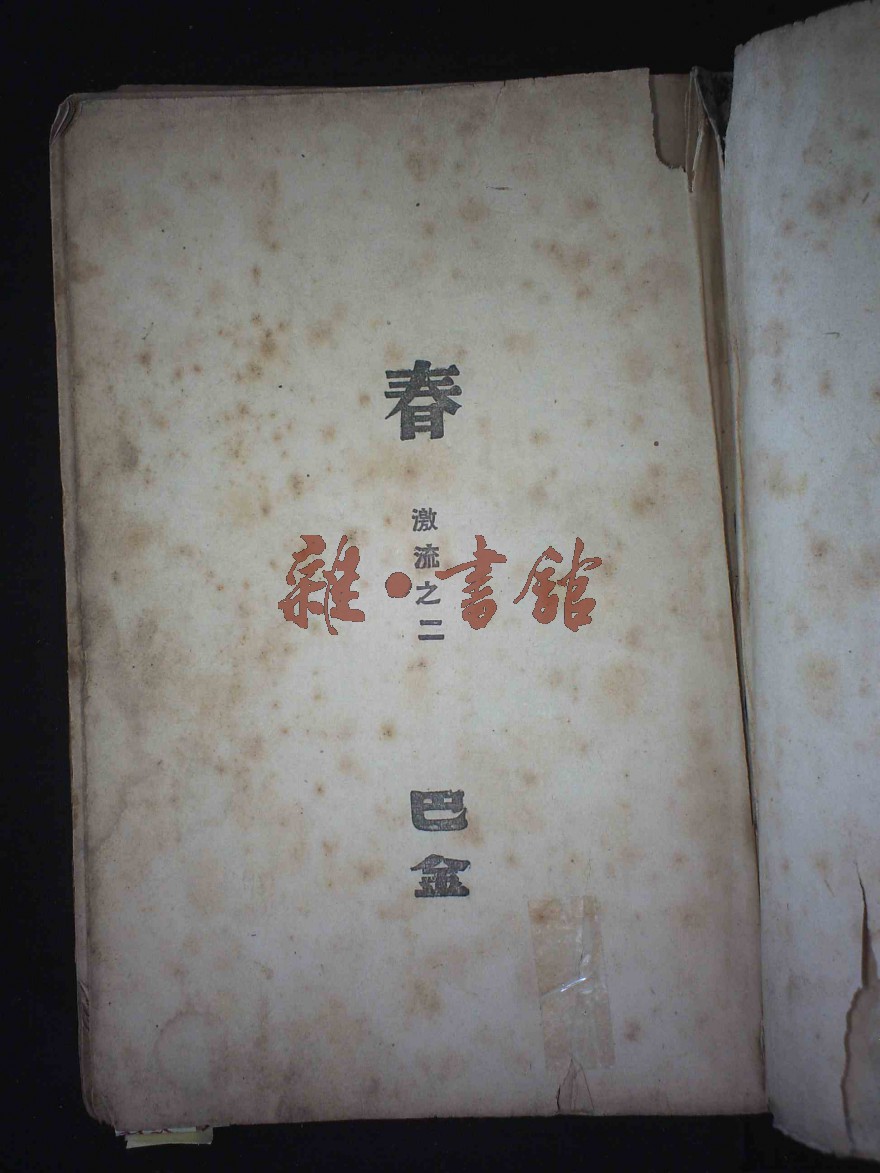 春
激流之二
雜·書館
巴金